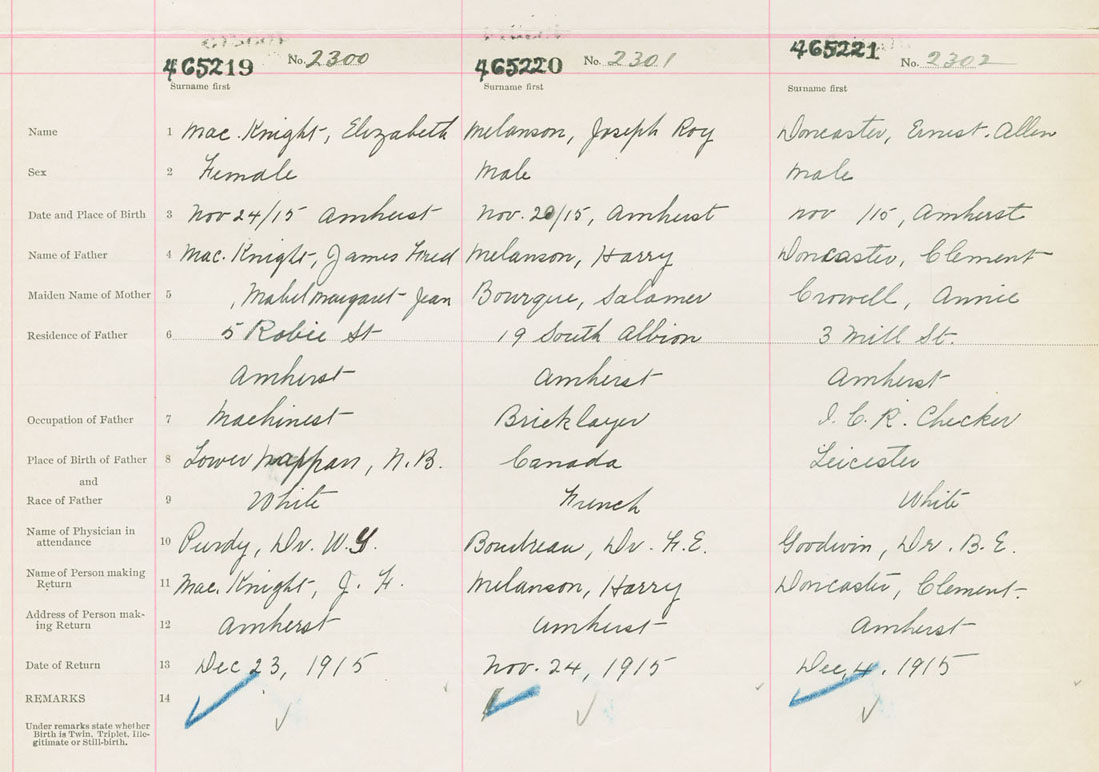 465219 No. 2300 465220 No. 2301 465221 No. 2302
Surname first Surname first Surname first
Name 1 Mac. Knight, Elizabeth Melanson, Joseph Roy Doncaster, Ernest. Allen
Sex 2 Female Male Male
Date and Place of Birth 3 Nov 24/15 Amherst Nov. 20/15, Amherst Nov /15, Amherst
Name of Father 4 Mac. Knight, James Fred Melanson, Harry Doncaster, Clement
Maiden Name of Mother 5 , Mabel Margaret Jean Bourque, Salamer Crowell, Annie
Residence of Father 6 5 Robie St 19 South Albion 3 Mill St.
Amherst Amherst Amherst
Occupation of Father 7 Machinest Bricklayer I. C. R. Checker
Place of Birth of Father 8 Lower Nappan, N.B. Canada Leicester
and
Race of Father 9 White French White
Name of Physician in
attendance 10 Purdy, Dr. W. G. Boudreau, Dr. F. E. Goodwin, Dr. B. E.
Name of Person making
Return 11 Mac. Knight, J. F. Melanson, Harry Doncaster, Clement.
Address of Person mak-
ing Return 12 Amherst Amherst Amherst
Date of Return 13 Dec 23, 1915 Nov. 24, 1915 Dec, 4. 1915
REMARKS 14
Under remarks state whether
Birth is Twin, Triplet, Ille-
gitimate or Still-birth.